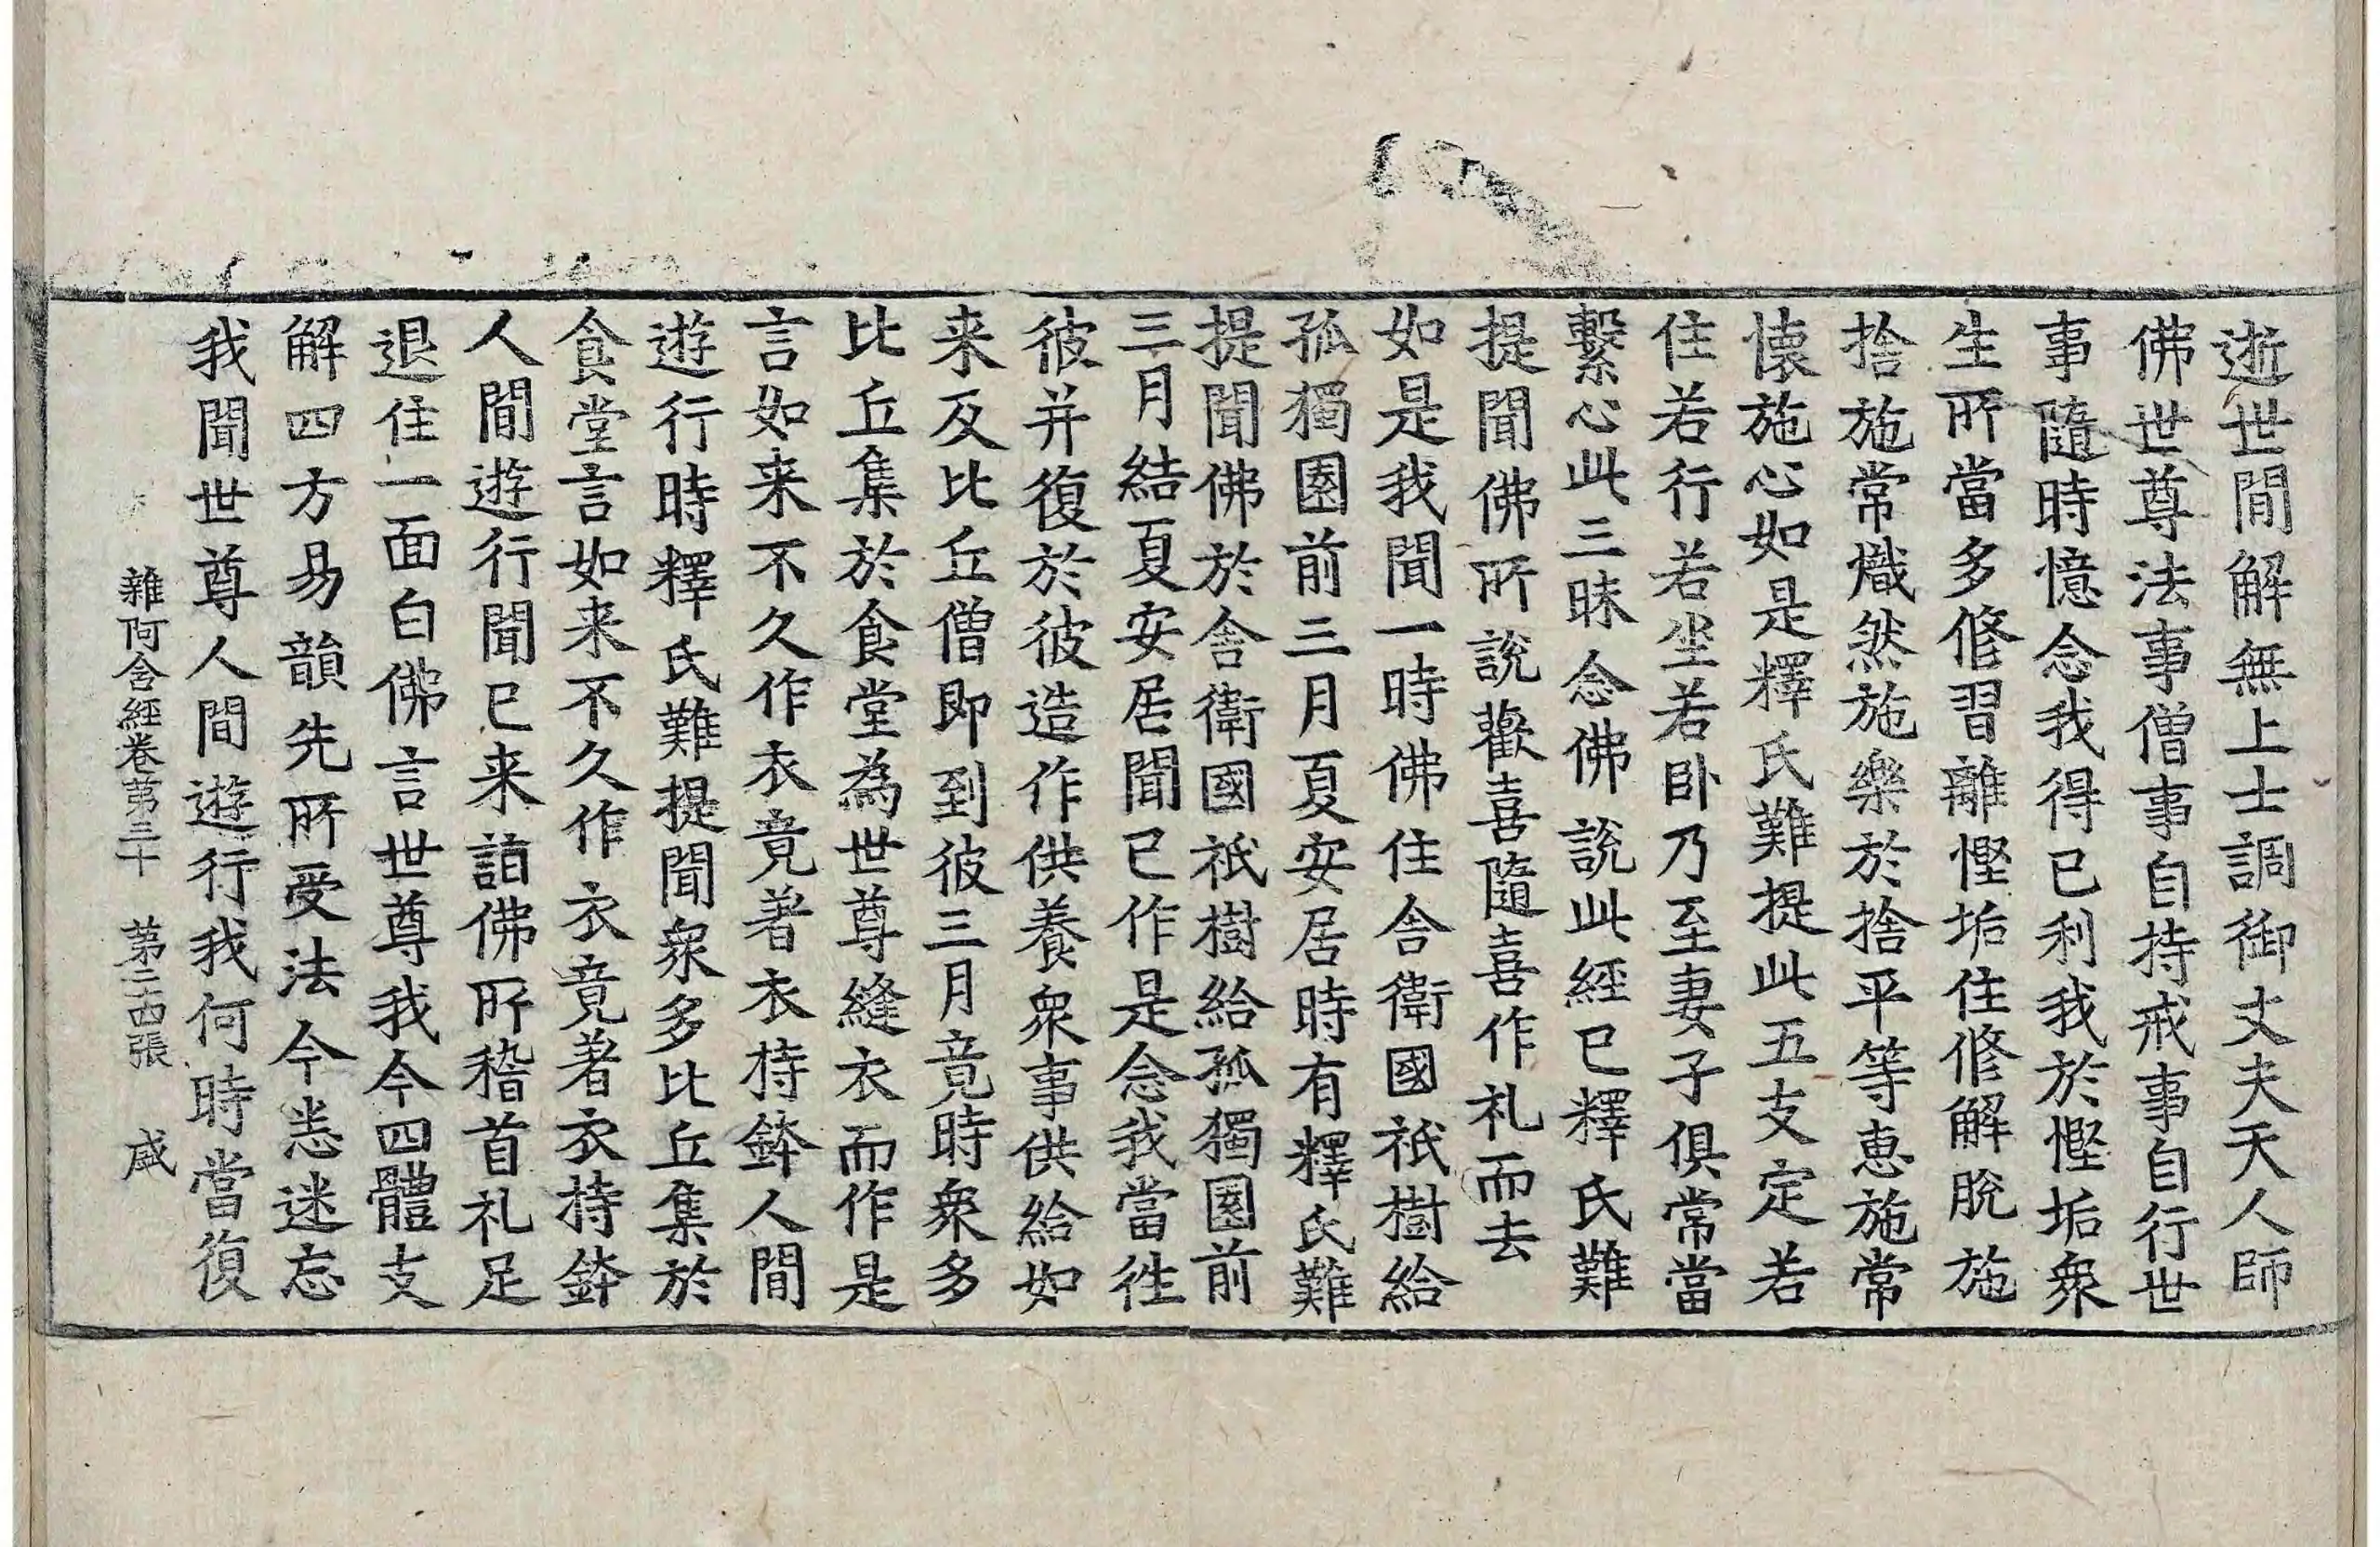 逝世間解無上士調御丈夫天人師
佛世尊法事僧事自持戒事自行世
事隨時憶念我得已利我於慳垢衆
生所當多修習離慳垢住修解脫施
捨施常熾然施樂於捨平等惠施常
懐施心如是釋氏難提此五支定若
住若行若坐若卧乃至妻子俱常當
繫心此三昧念佛說此經已釋氏難
提聞佛所說歡喜隨喜作礼而去
如是我聞一時佛住舍衛國祇樹給
孤獨園前三月夏安居時有釋氏難
提聞佛於舍衛國祇樹給孤獨園前
三月結夏安居聞已作是念我當徃
彼并復於彼造作供養衆事供給如
来及比丘僧即到彼三月竟時衆多
比丘集於食堂為世尊縫衣而作是
言如来不久作衣竟著衣持鉢人間
遊行時釋氏難提聞衆多比丘集於
食堂言如来不久作衣竟著衣持鉢
人間遊行聞已来詣佛所稽首礼足
退住一面白佛言世尊我今四體支
解四方易韻先所受法今悉迷忘
我聞世尊人間遊行我何時當復
雜阿含經卷苐三十　苐二十四張　咸